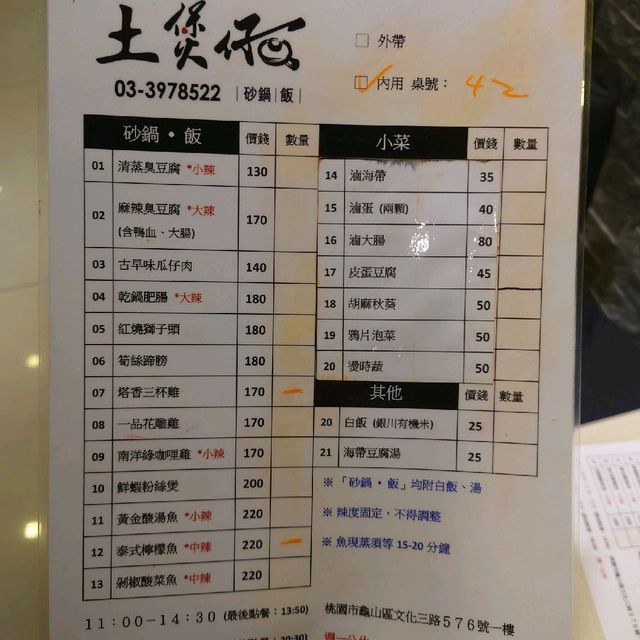 土煲仔
03-3978522 |砂鍋|飯|
□ 外帶
□ 內用 桌號： 42
砂鍋・飯 價錢 數量
01 清蒸臭豆腐 *小辣 130
02 麻辣臭豆腐 *大辣 (含鴨血、大腸) 170
03 古早味瓜仔肉 140
04 乾鍋肥腸 *大辣 180
05 紅燒獅子頭 180
06 筍絲蹄膀 180
07 塔香三杯雞 170
08 一品花雕雞 170
09 南洋綠咖哩雞 *小辣 170
10 鮮蝦粉絲煲 200
11 黃金酸湯魚 *小辣 220
12 泰式檸檬魚 *中辣 220
13 剁椒酸菜魚 *中辣 220
小菜 價錢 數量
14 滷海帶 35
15 滷蛋 (兩顆) 40
16 滷大腸 80
17 皮蛋豆腐 45
18 胡麻秋葵 50
19 鴉片泡菜 50
20 燙時蔬 50
其他 價錢 數量
20 白飯 (銀川有機米) 25
21 海帶豆腐湯 25
※ 「砂鍋・飯」均附白飯、湯
※ 辣度固定，不得調整
※ 魚現蒸須等 15-20 分鐘
11:00-14:30 (最後點餐：13:50)
桃園市龜山區文化三路576號一樓